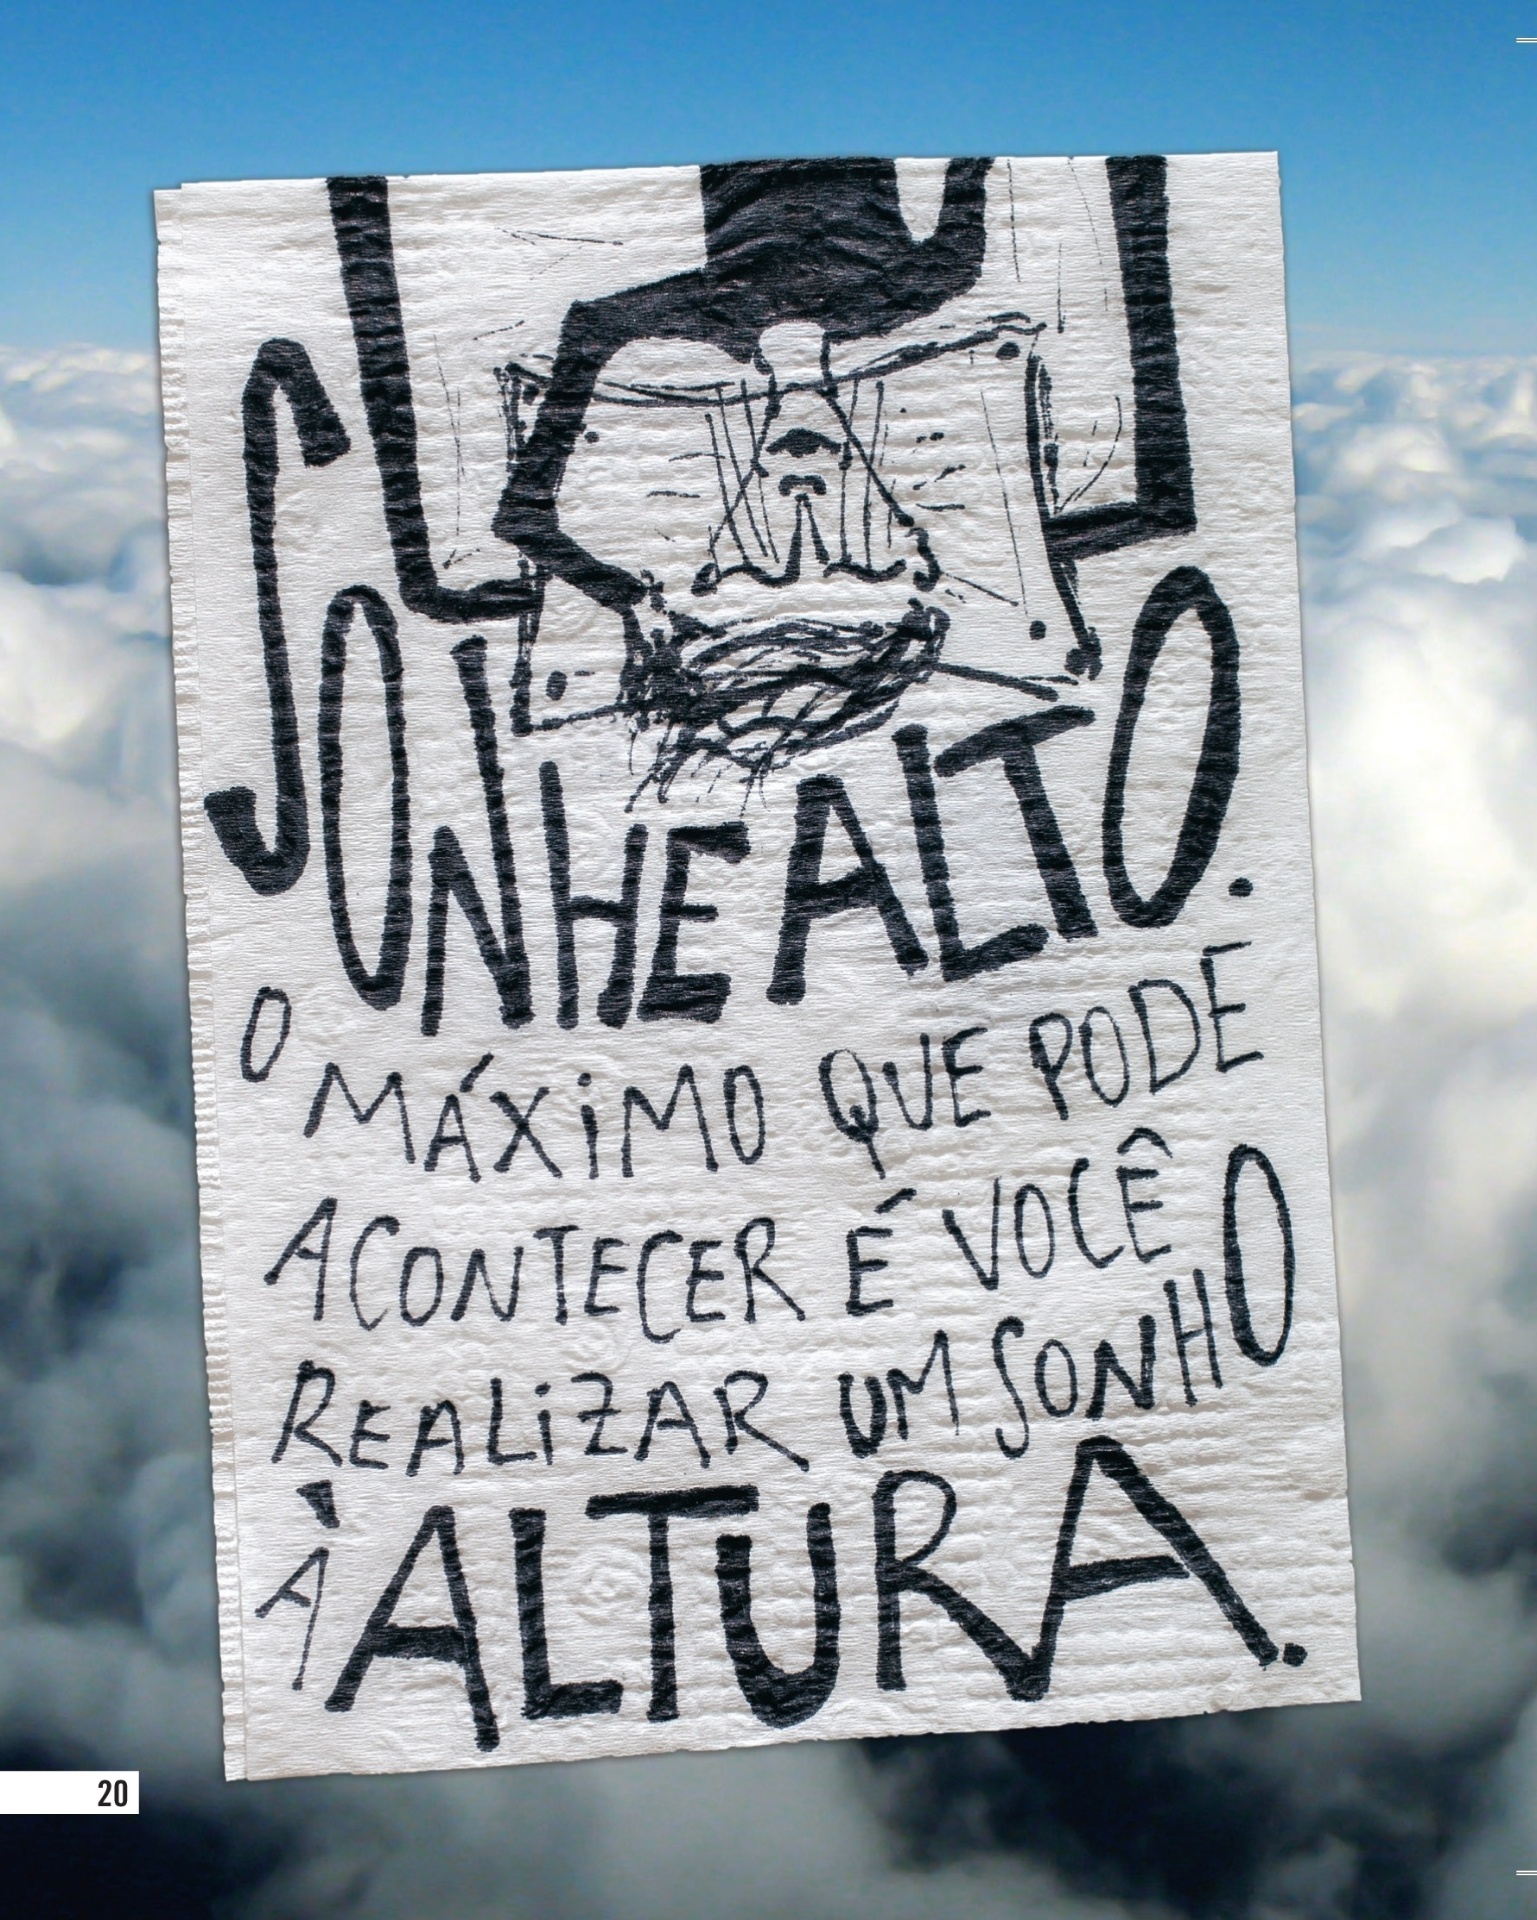 SONHE ALTO.
O MÁXiMO QUE PODE
ACONTECER É VOCÊ
REALiZAR UM SONHO
À ALTURA.
20